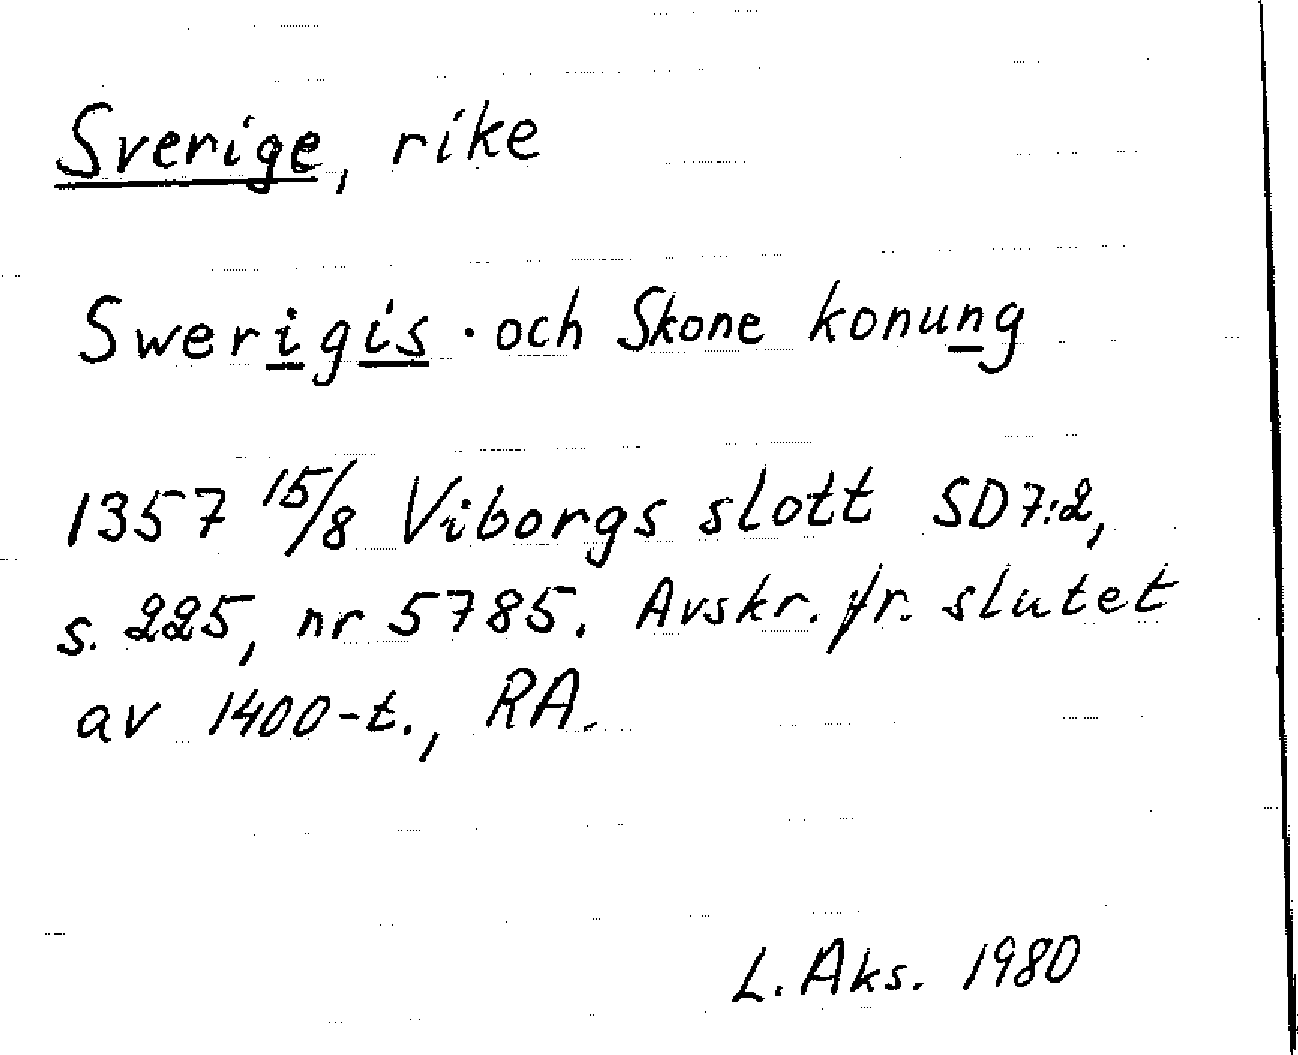 Sverige, rike
Swerigis · och Skone konung
1357 15/8 Viborgs slott SD 7:2,
s. 225, nr 5785. Avskr. fr. slutet
av 1400-t., RA.
L. Aks. 1980